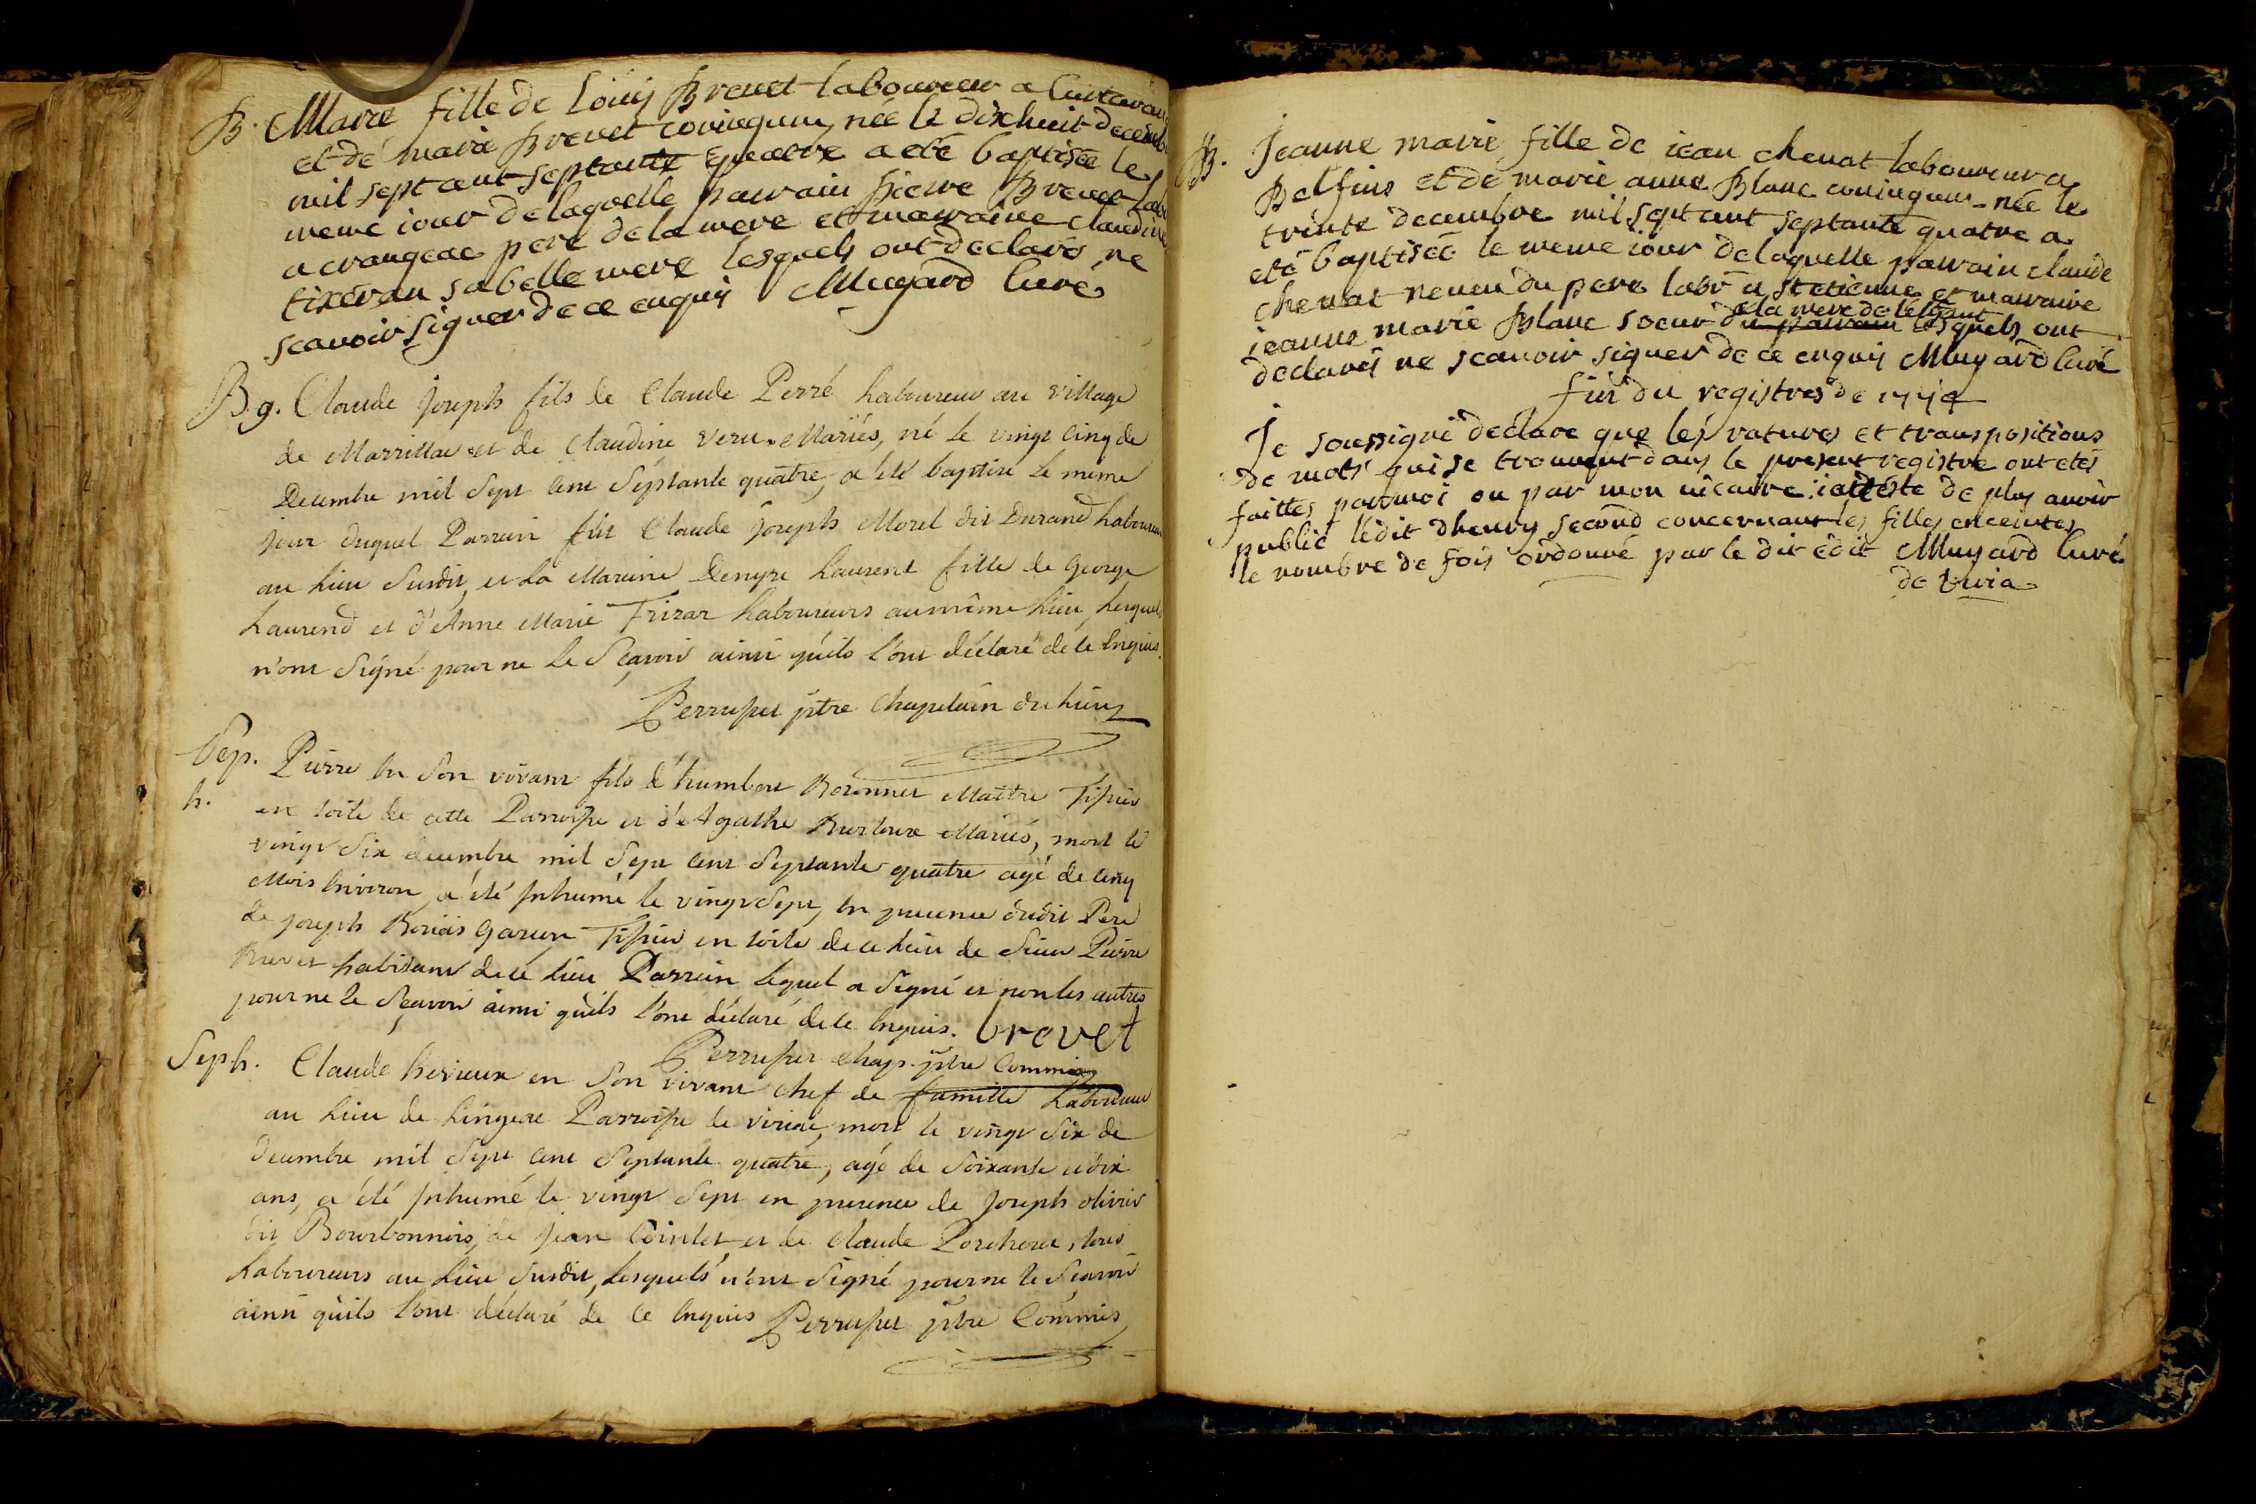 B. Marie fille de Louis Brevet laboureur a
et de marie Brevet coniugaux, née le dixhuit decemb
mil sept cent septante quatre a eté baptisée le
meme iour de laquelle parrain pierre Brevet lab
a crangeac pere de la mere et marraine claudine
tixeran sa belle mere lesquels ont declarés ne
scavoir signer de ce enquis Muyard Curé
B. g. Claude Joseph fils de Claude Perré Laboureur au village
de Marrillia et de Claudine veru Mariés, né le vingt cinq de
Decembre mil Sept cent Septante quatre, a été baptisé le même
jour duquel Parrain fut Claude Joseph Morel dit Durand Laboureur
au Lieu Susdit, et La Maraine Denyse Laurent fille de George
Laurend et d'Anne Marie Frizar Laboureurs au même Lieu, Lesquels
n'ont Signé pour ne Le Sçavoir ainsi qu'ils l'ont déclaré de ce Enquis.
Perruset ptre Chapelain du Lieu
Sep. Pierre en Son vivant fils d'humbert Maitre Tissier
h. en toile de cette Parroisse et d'Agathe Mariés, mort le
vingt Six decembre mil Sept cent Septante quatre agé de cinq
Mois Environ, a été Inhumé le vingt Sept, en presence dudit Pere
de Joseph garçon Tissier en toile de ce Lieu de Sieur Pierre
Brevet habitant de ce Lieu Parrein lequel a Signé et non les autres
pour ne le Sçavoir ainsi qu'ils l'ont déclaré de ce Enquis. brevet
Perruset chap. ptre Commis
Seph. Claude en Son vivant chef de famille Laboureur
au Lieu de Lingeat Parroisse de viriat, mort le vingt Six de
Decembre mil Sept cent Septante quatre, agé de Soixante et dix
ans, a été Inhumé le vingt Sept en presence de Joseph olivier
dit Bourbonnois, de Jean Cointet et de Claude tous
Laboureurs au Lieu Susdit, Lesquels n'ont Signé pour ne le Sçavoir
ainsi qu'ils l'ont déclaré de ce Enquis Perruset ptre Commis
B. Jeanne marie fille de iean chenat laboureur a
Belfius et de marie anne Blanc coniugaux née le
trente decembre mil sept cent septante quatre a
eté baptisée le meme iour de laquelle parrain claude
chenat neveu du pere labr a st etienne et marraine
ieanne marie Blanc soeur du parrain de la mere de l'enfant lesquels ont
declarés ne scavoir signer de ce enquis Muyard Curé
fin du registres de 1774
Je soussigné déclare que les ratures et transpositions
de mots qui se trouvent dans le present registre ont etés
faittes par moi ou par mon vicaire. iatteste de plus avoir
publié l'édit d'henry second concernant les filles enceintes
le nombre de fois ordonné par le dit édit Muyard Curé
de viria